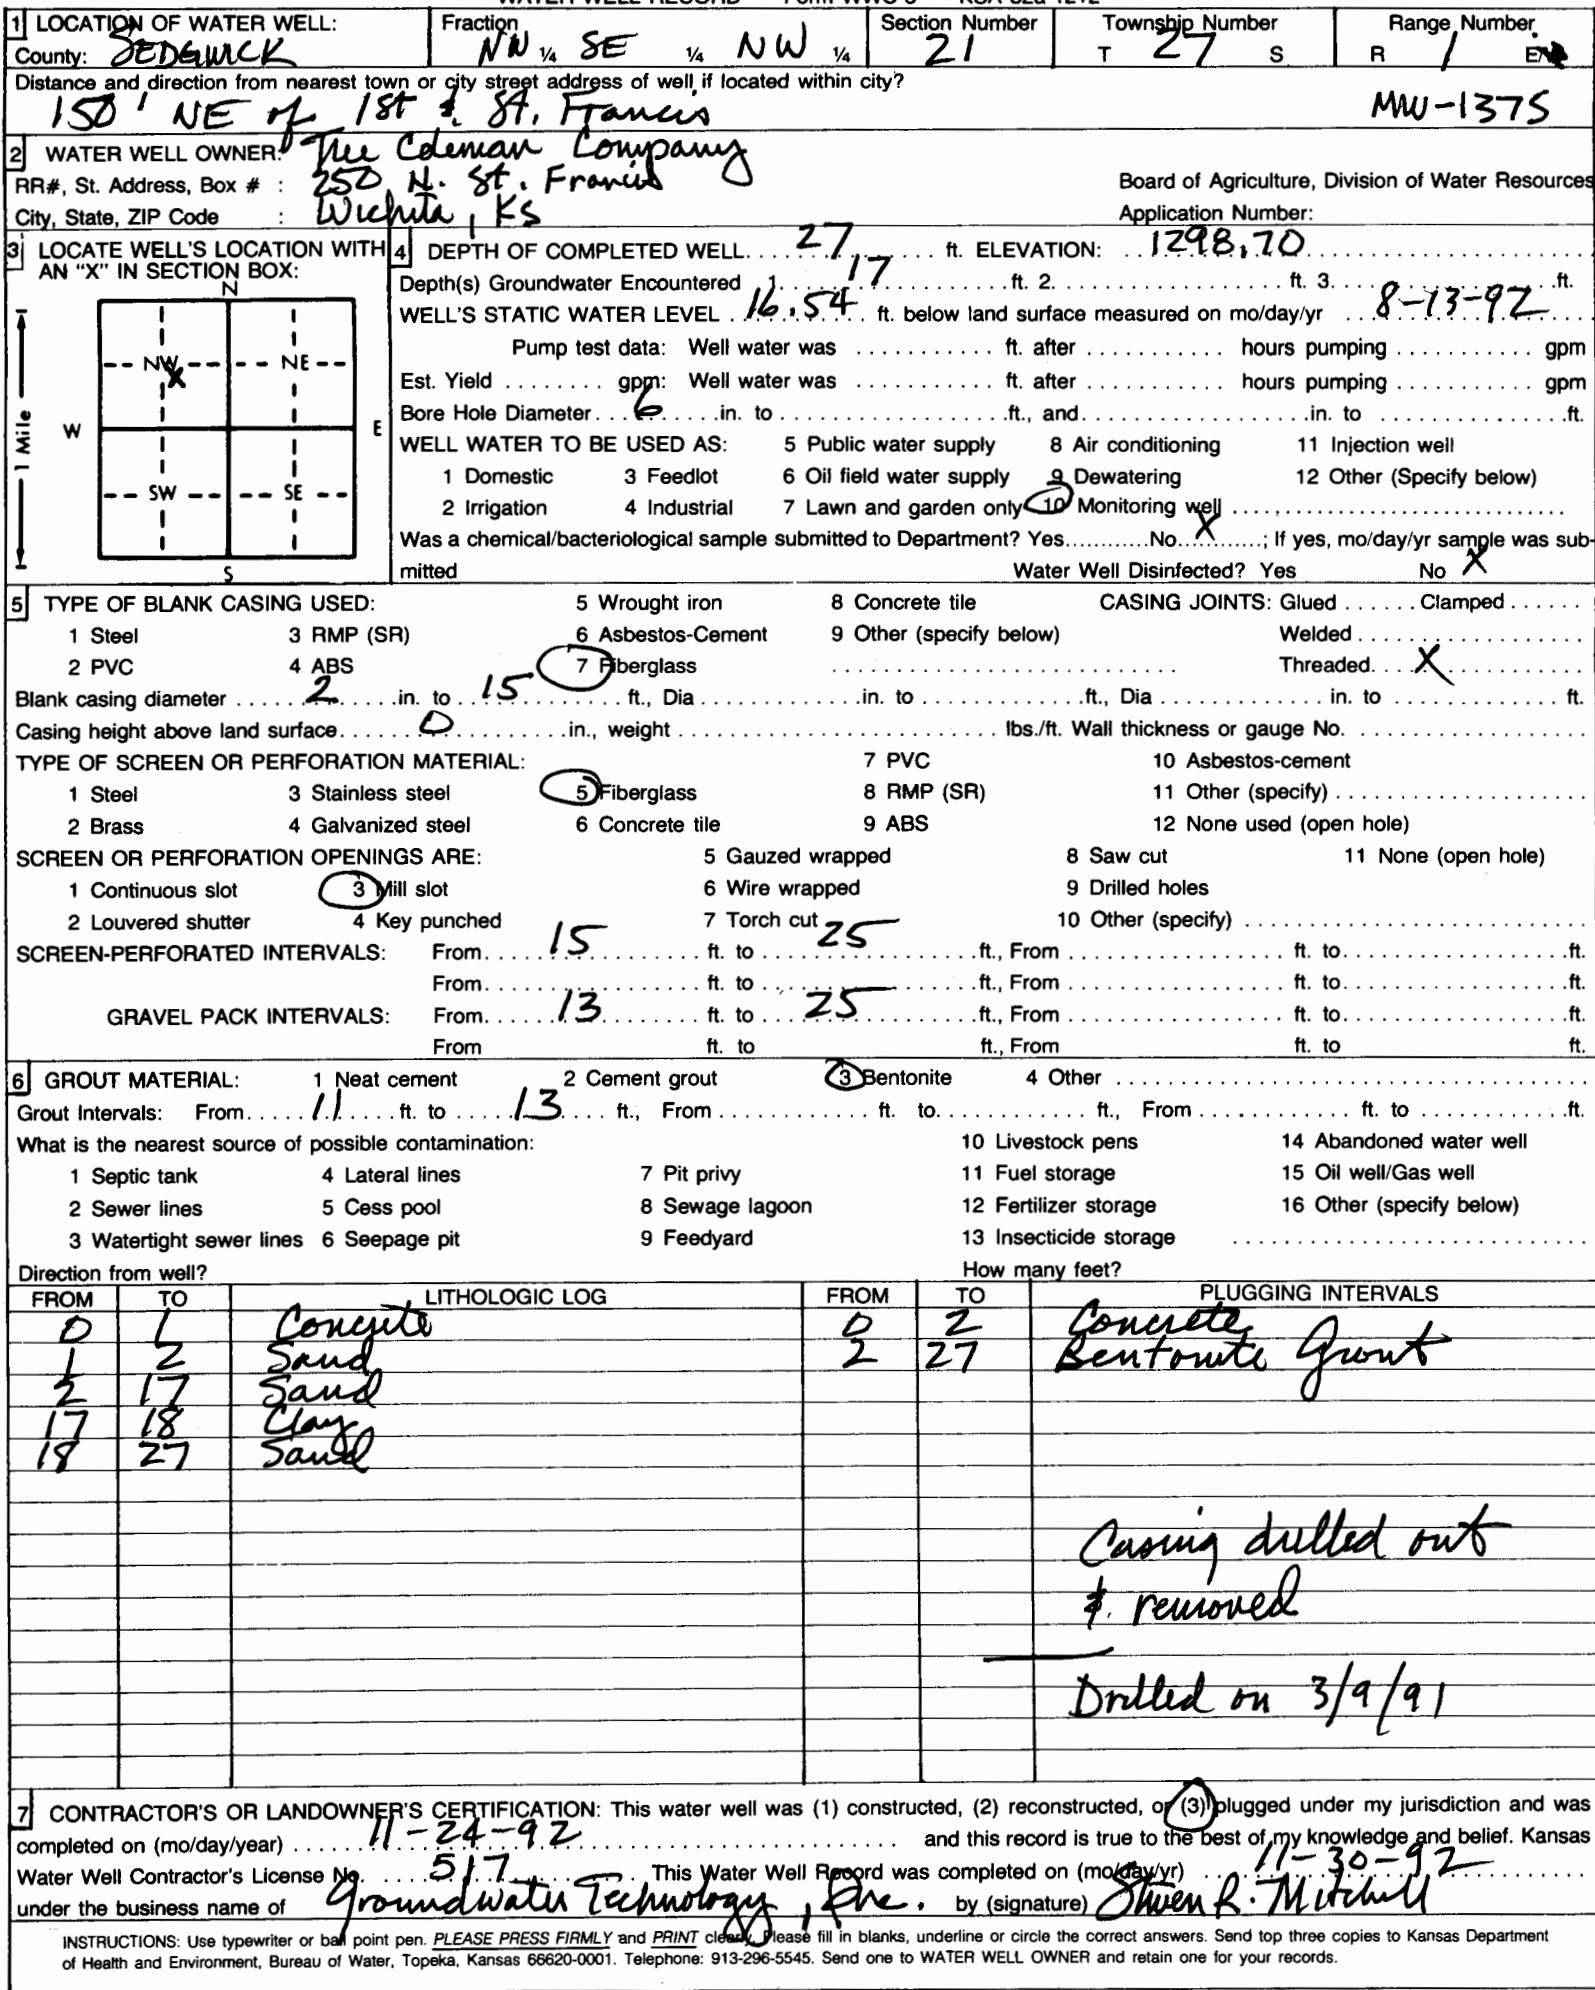 WATER WELL RECORD Form WWC-5 KSA 82a-1212
1 LOCATION OF WATER WELL: Fraction Section Number Township Number Range Number
County: SEDGWICK NW ¼ SE ¼ NW ¼ 21 T 27 S R 1 E
Distance and direction from nearest town or city street address of well if located within city?
150' NE of 1st & St. Francis MW-137S
2 WATER WELL OWNER: The Coleman Company
RR#, St. Address, Box # : 250 N. St. Francis Board of Agriculture, Division of Water Resources
City, State, ZIP Code : Wichita, KS Application Number:
3 LOCATE WELL'S LOCATION WITH AN "X" IN SECTION BOX:
N
NW X NE
W E
1 Mile
SW SE
S
4 DEPTH OF COMPLETED WELL 27 ft. ELEVATION: 1298.70
Depth(s) Groundwater Encountered 1. 17 ft. 2. ft. 3. ft.
WELL'S STATIC WATER LEVEL 16.54 ft. below land surface measured on mo/day/yr 8-13-92
Pump test data: Well water was ft. after hours pumping gpm
Est. Yield gpm: Well water was ft. after hours pumping gpm
Bore Hole Diameter 6 in. to ft., and in. to ft.
WELL WATER TO BE USED AS: 5 Public water supply 8 Air conditioning 11 Injection well
1 Domestic 3 Feedlot 6 Oil field water supply 9 Dewatering 12 Other (Specify below)
2 Irrigation 4 Industrial 7 Lawn and garden only 10 Monitoring well
Was a chemical/bacteriological sample submitted to Department? Yes No X ; If yes, mo/day/yr sample was sub-
mitted Water Well Disinfected? Yes No X
5 TYPE OF BLANK CASING USED: 5 Wrought iron 8 Concrete tile CASING JOINTS: Glued Clamped
1 Steel 3 RMP (SR) 6 Asbestos-Cement 9 Other (specify below) Welded
2 PVC 4 ABS 7 Fiberglass Threaded X
Blank casing diameter 2 in. to 15 ft., Dia in. to ft., Dia in. to ft.
Casing height above land surface 0 in., weight lbs./ft. Wall thickness or gauge No.
TYPE OF SCREEN OR PERFORATION MATERIAL: 7 PVC 10 Asbestos-cement
1 Steel 3 Stainless steel 5 Fiberglass 8 RMP (SR) 11 Other (specify)
2 Brass 4 Galvanized steel 6 Concrete tile 9 ABS 12 None used (open hole)
SCREEN OR PERFORATION OPENINGS ARE: 5 Gauzed wrapped 8 Saw cut 11 None (open hole)
1 Continuous slot 3 Mill slot 6 Wire wrapped 9 Drilled holes
2 Louvered shutter 4 Key punched 7 Torch cut 10 Other (specify)
SCREEN-PERFORATED INTERVALS: From 15 ft. to 25 ft., From ft. to ft.
From ft. to ft., From ft. to ft.
GRAVEL PACK INTERVALS: From 13 ft. to 25 ft., From ft. to ft.
From ft. to ft., From ft. to ft.
6 GROUT MATERIAL: 1 Neat cement 2 Cement grout 3 Bentonite 4 Other
Grout Intervals: From 11 ft. to 13 ft., From ft. to ft., From ft. to ft.
What is the nearest source of possible contamination: 10 Livestock pens 14 Abandoned water well
1 Septic tank 4 Lateral lines 7 Pit privy 11 Fuel storage 15 Oil well/Gas well
2 Sewer lines 5 Cess pool 8 Sewage lagoon 12 Fertilizer storage 16 Other (specify below)
3 Watertight sewer lines 6 Seepage pit 9 Feedyard 13 Insecticide storage
Direction from well? How many feet?
FROM TO LITHOLOGIC LOG FROM TO PLUGGING INTERVALS
0 1 Concrete 0 2 Concrete
1 2 Sand 2 27 Bentonite Grout
2 17 Sand
17 18 Clay
18 27 Sand
Casing drilled out
& removed
Drilled on 3/9/91
7 CONTRACTOR'S OR LANDOWNER'S CERTIFICATION: This water well was (1) constructed, (2) reconstructed, or (3) plugged under my jurisdiction and was
completed on (mo/day/year) 11-24-92 and this record is true to the best of my knowledge and belief. Kansas
Water Well Contractor's License No. 517 This Water Well Record was completed on (mo/day/yr) 11-30-92
under the business name of Groundwater Technology, Inc. by (signature) Steven R. Mitchell
INSTRUCTIONS: Use typewriter or ball point pen. PLEASE PRESS FIRMLY and PRINT clearly. Please fill in blanks, underline or circle the correct answers. Send top three copies to Kansas Department
of Health and Environment, Bureau of Water, Topeka, Kansas 66620-0001. Telephone: 913-296-5545. Send one to WATER WELL OWNER and retain one for your records.